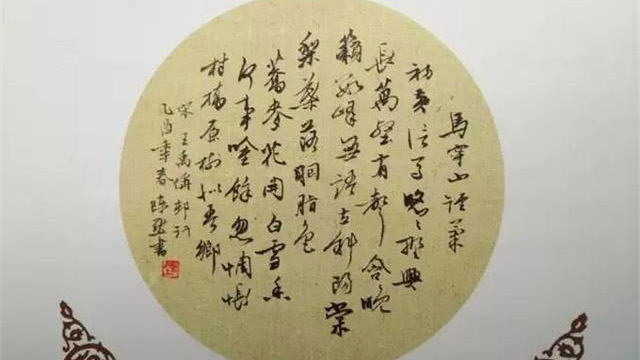 馬穿山徑菊
初黄信马悠々野興
長萬壑有聲含晚
籟數峰無語立斜陽棠
梨葉落胭脂色
蕎麥花開白雪香
何事吟餘忽惆悵
村橋原樹似吾鄉
宋王禹偁邨行
乙酉季春陈書